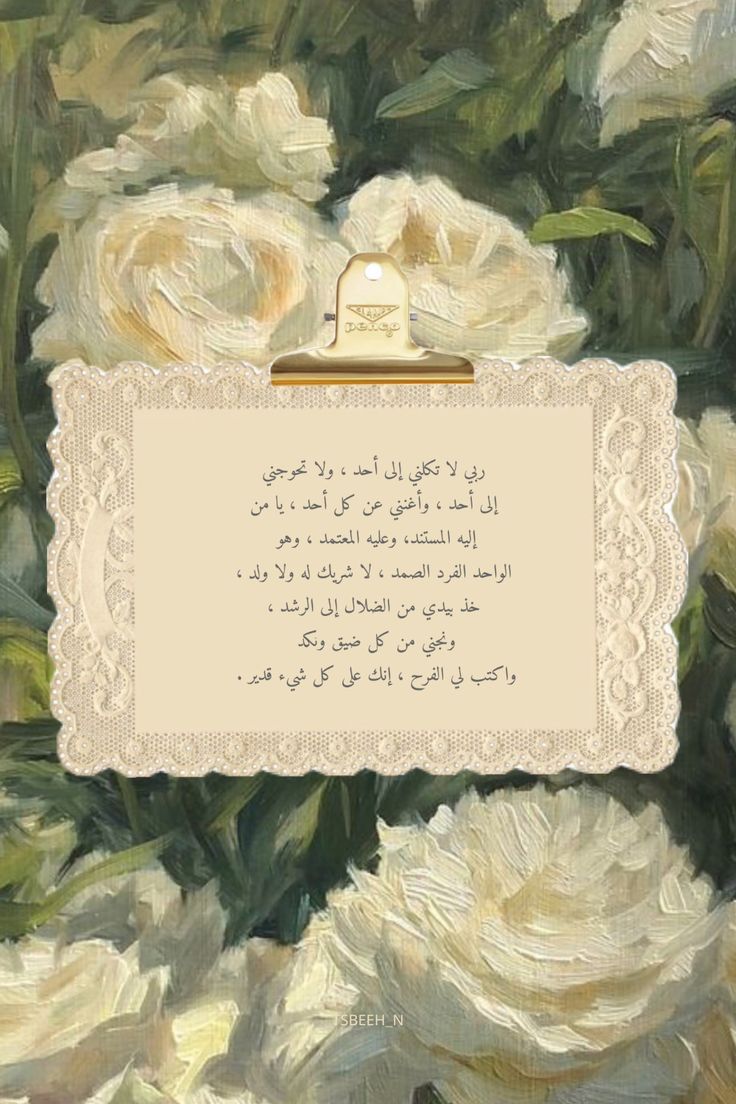 ربي لا تكلني إلى أحد ، ولا تحوجني
إلى أحد ، وأغنني عن كل أحد ، يا من
إليه المستند، وعليه المعتمد ، وهو
الواحد الفرد الصمد ، لا شريك له ولا ولد ،
خذ بيدي من الضلال إلى الرشد ،
ونجني من كل ضيق ونكد
واكتب لي الفرح ، إنك على كل شيء قدير .
TSBEEH_N